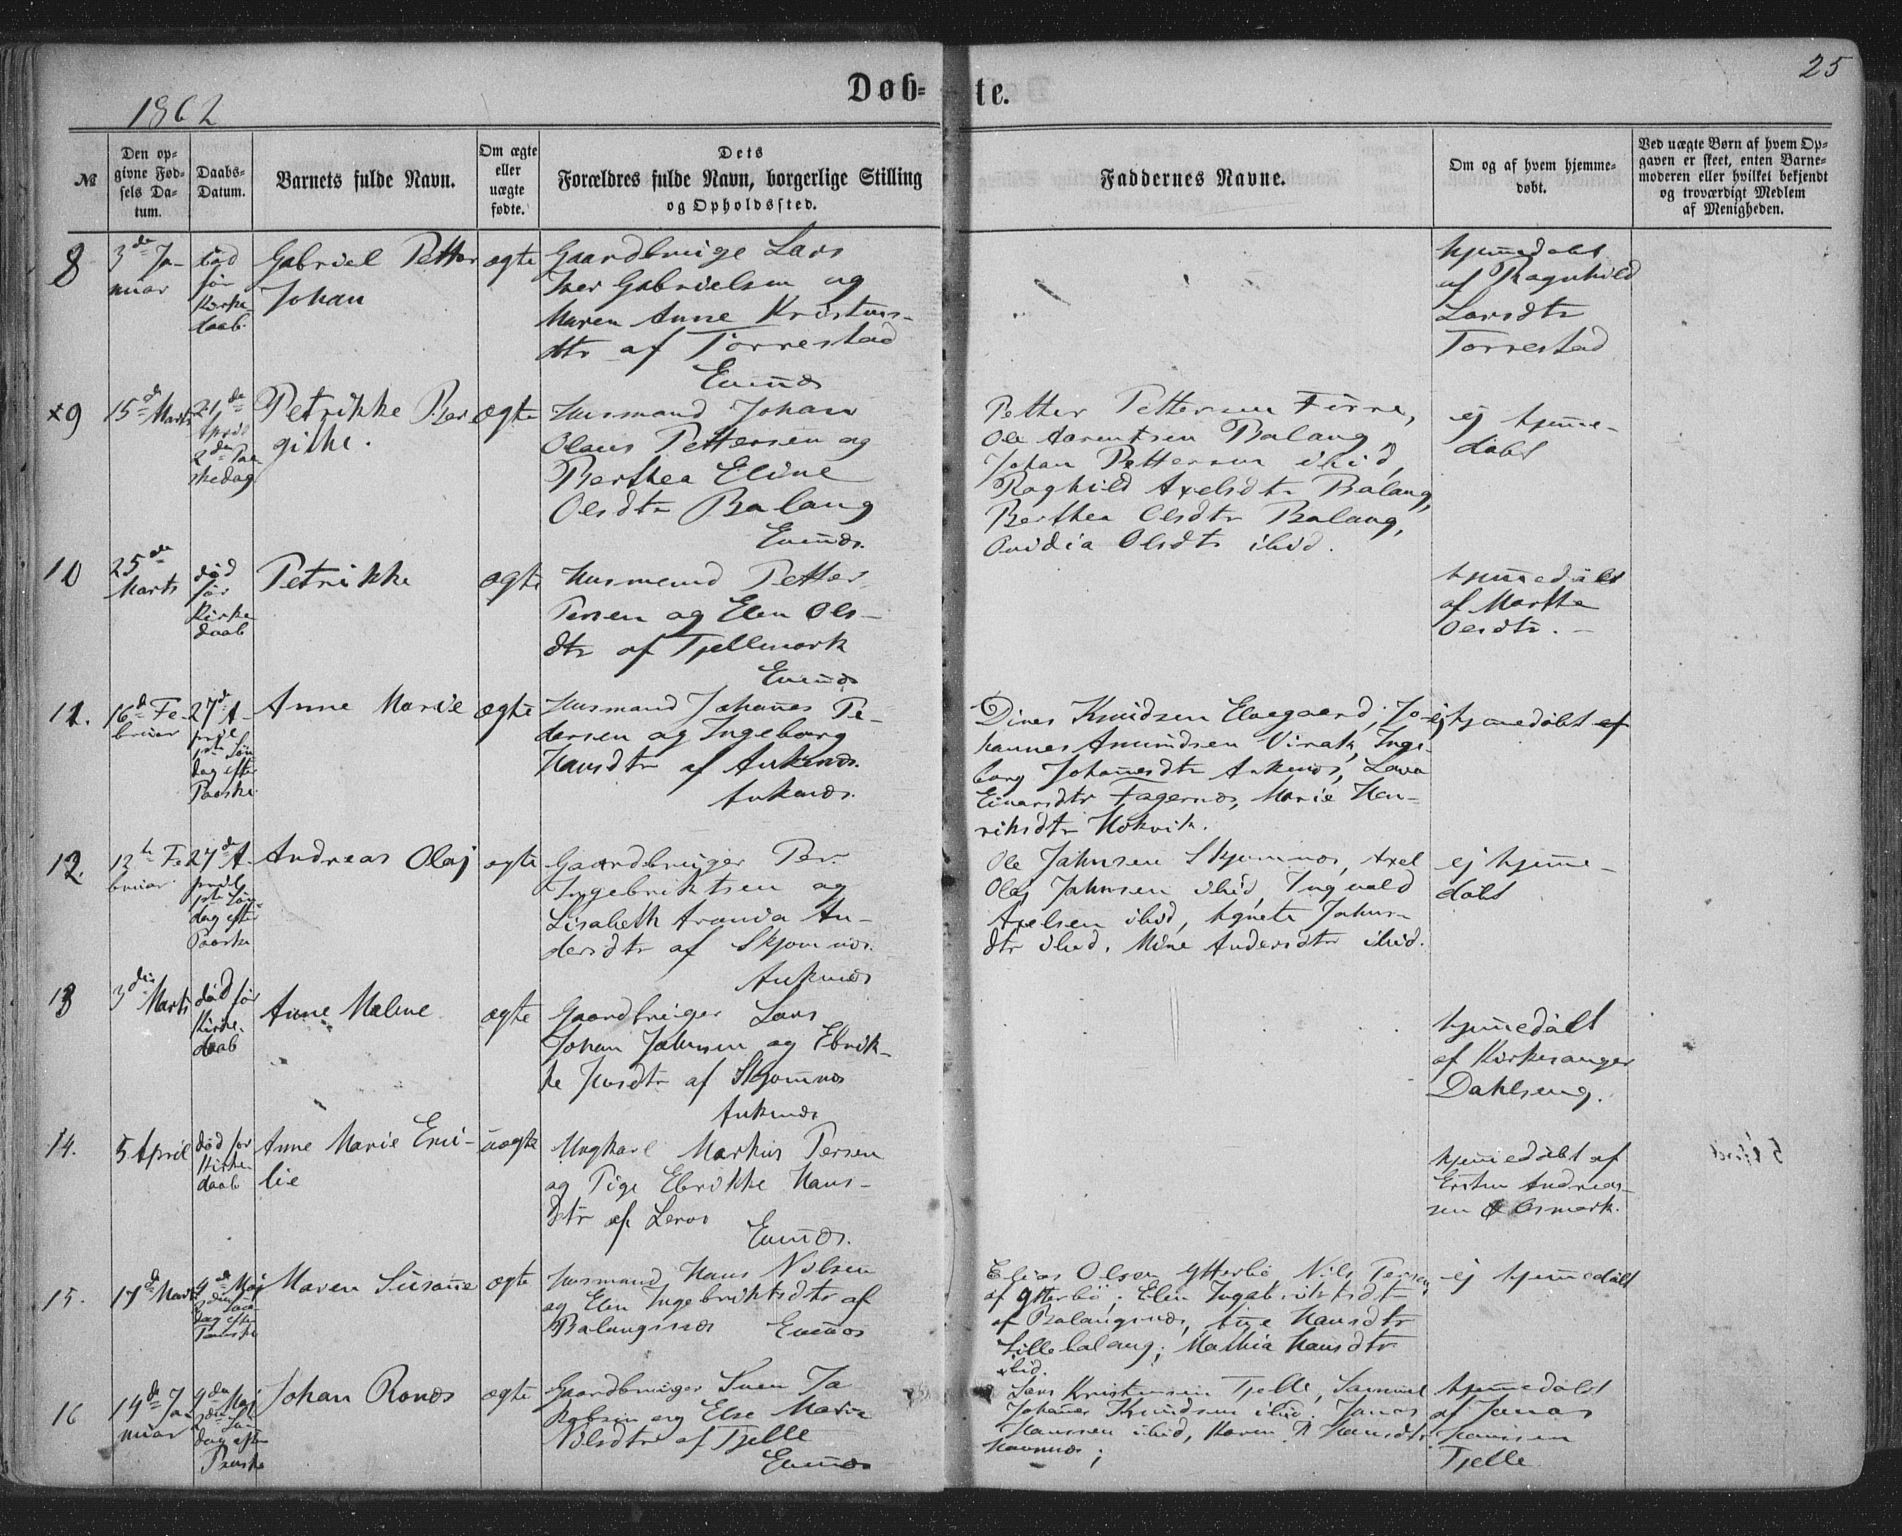 25
1862
Døb-te.
№
Den op-
givne Fød-
sels Da-
tum.
Daabs-
Datum.
Barnets fulde Navn.
Om ægte
eller
uægte
fødte.
Dets
Forældres fulde Navn, borgerlige Stilling
og Opholdssted.
Faddernes Navne.
Om og af hvem hjemme-
døbt.
Ved uægte Børn af hvem Op-
gaven er skeet, enten Barne-
moderen eller hvilket bekjendt
og troværdigt Medlem
af Menigheden.
8
3de Ja-
nuar
død
før
Kirke
daab
Gabriel Petter
Johan
ægte
Gaardbruger Lars
Iver Gabrielsen og
Maren Anne
dtr af Tørrestad
Evenæs
hjemedøbt
af Ragnhild
Larsdtr
Tørrestad
x9
15de Marts
21de
April
2den Paa-
skedag
Petrikke Ber
githe.
ægte
Husmand Johan
Olaus Pettersen og
Berthea Eline
Olsdtr Balang
Evenæs.
Petter Pettersen
Ole Aarentsen Balang,
Johan Pettersen ibid,
Raghild Axelsdtr Balang,
Berthea Olsdtr Balang,
Ovidia Olsdtr ibid.
ej hjeme-
døbt
10
25de
Marts
død
før
Kirke
daab
Petrikke
ægte
Husmand Petter
Persen og Elen Ols-
dtr af Tjellmark
Evenæs
hjemedøbt
af Marthe
Olsdtr.
11.
16de Fe-
bruar
27de A-
pril
1ste Søn
dag efter
Paaske
Anne Marie
ægte
Husmand Johanes Pe-
dersen og Ingeborg
Hansdtr af Ankenæs.
Ankenæs.
Dines Knudsen Elvegaard, Jo-
hannes Amundsen Virak, Inge-
borg Johanesdtr Ankenæs, Lava
Einarsdtr Fagernæs, Marie Hen-
riksdtr Haavik.
ej hjemedøbt af
12.
12te Fe
bruar
27de A-
pril
1ste Søn
dag efter
Paaske
Andreas Olaj
ægte
Gaardbruger Per
Ingebriktsen og
Lisabeth Arania An-
dersdtr af Skjomnæs.
Ankenæs
Ole Jahnsen Skjomnæs, Axel
Olaj Jahnsen ibid, Ingvald
Axelsen ibid, Agnete Jahns-
dtr ibid. Mine Andersdtr ibid.
ej hjeme-
døbt
13
3die Marts
død før
Kirke-
daab
Anne Malene
ægte
Gaardbruger Lars
Johan Jahnsen og Ebrik-
ke Persdtr af Skjomnæs
Ankenæs
hjemedøbt
af Kirkesanger
Dahlseng.
14.
5 April
død før
Kirke
daab
Anne Marie Emi-
lie
uægte
Ungkarl Markus Persen
og Pige Ebrikke Hans-
dtr af Leros
Evenæs.
hjemedøbt af
Ersten Andreas-
sen Osmark.
15.
17de Marts
4de Maj
2den Søn
dag efter
Paaske
Maren Susanne
ægte
Husmand Hans Nilsen
og Elen Ingebriktsdtr af
Balangsnæs Evenæs
Elias Olsen Ytterbø, Nils Persen
af Ytterbø, Elen Ingebriktsdtr
af Balangsnæs, Ane Hansdtr
Lillebalang, Mathia Hansdtr
ibid.
ej hjemedøbt
16
14de Ja-
nuar
4de Maj
2den Søn
dag efter
Paaske
Johan Ronæs
ægte
Gaardbruger Sven Ja
kobsen og Else Maria
Nilsdtr af Tjelle
Evenæs
Lars Kristensen Tjelle, Samuel
Johannes Knudsen ibid. Jonas
Hanssen ibid, Karen P. Hansdtr
Havnnæs;
hjemedøbt
af Jonas
Hanssen
Tjelle